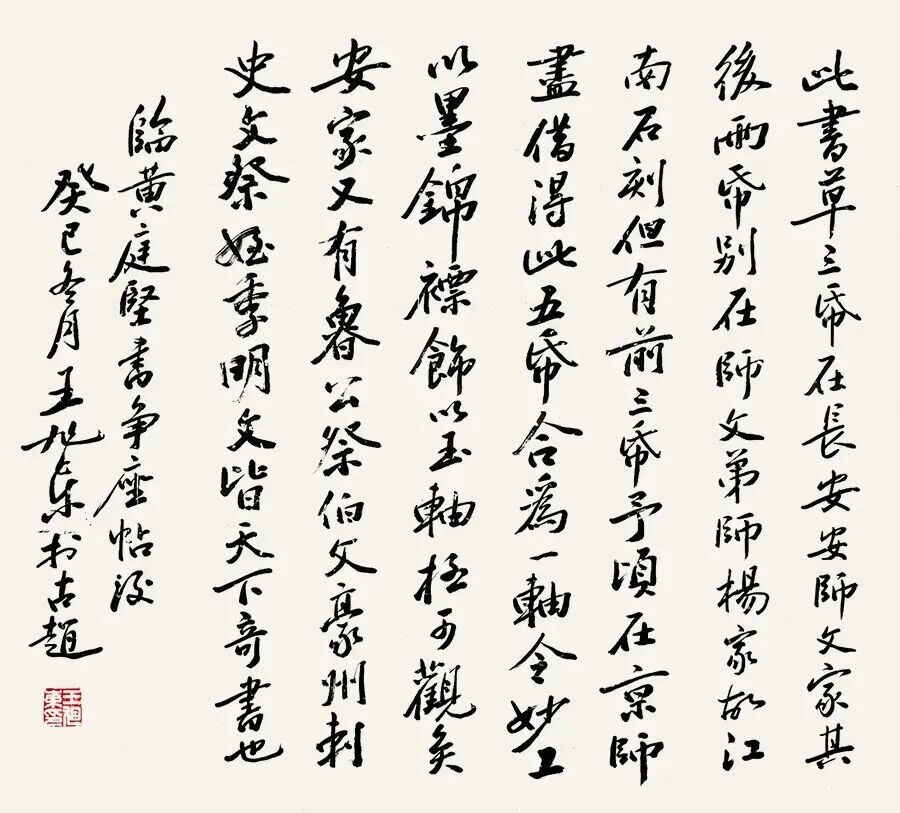 此書草三帋在長安安師文家其
後兩帋別在師文弟師楊家故江
南石刻但有前三帋予頃在京師
盡借得此五帋合爲一軸令妙工
以墨錦褾飾以玉軸極可觀矣
安家又有魯公祭伯父豪州刺
史文祭姪季明文皆天下奇書也
臨黃庭堅書争座帖跋
癸巳冬月王旭東於古趙